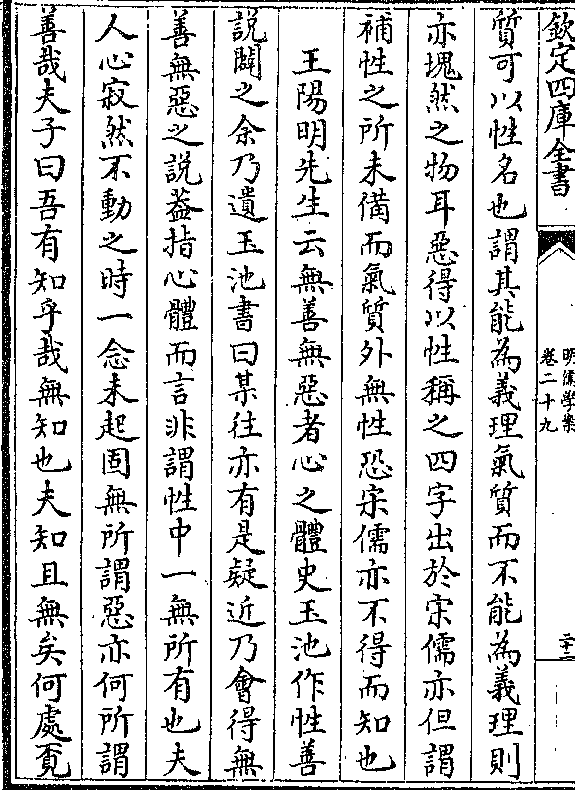 欽定四庫全書
明儒學案
卷二十九
二十二
質可以性名也謂其能為義理氣質而不能為義理則
亦塊然之物耳惡得以性稱之四字出於宋儒亦但謂
補性之所未備而氣質外無性恐宋儒亦不得而知也
王陽明先生云無善無惡者心之體史玉池作性善
說闢之余乃遺玉池書曰某往亦有是疑近乃會得無
善無惡之說葢指心體而言非謂性中一無所有也夫
人心寂然不動之時一念未起固無所謂惡亦何所謂
善哉夫子曰吾有知乎哉無知也夫知且無矣何處覔